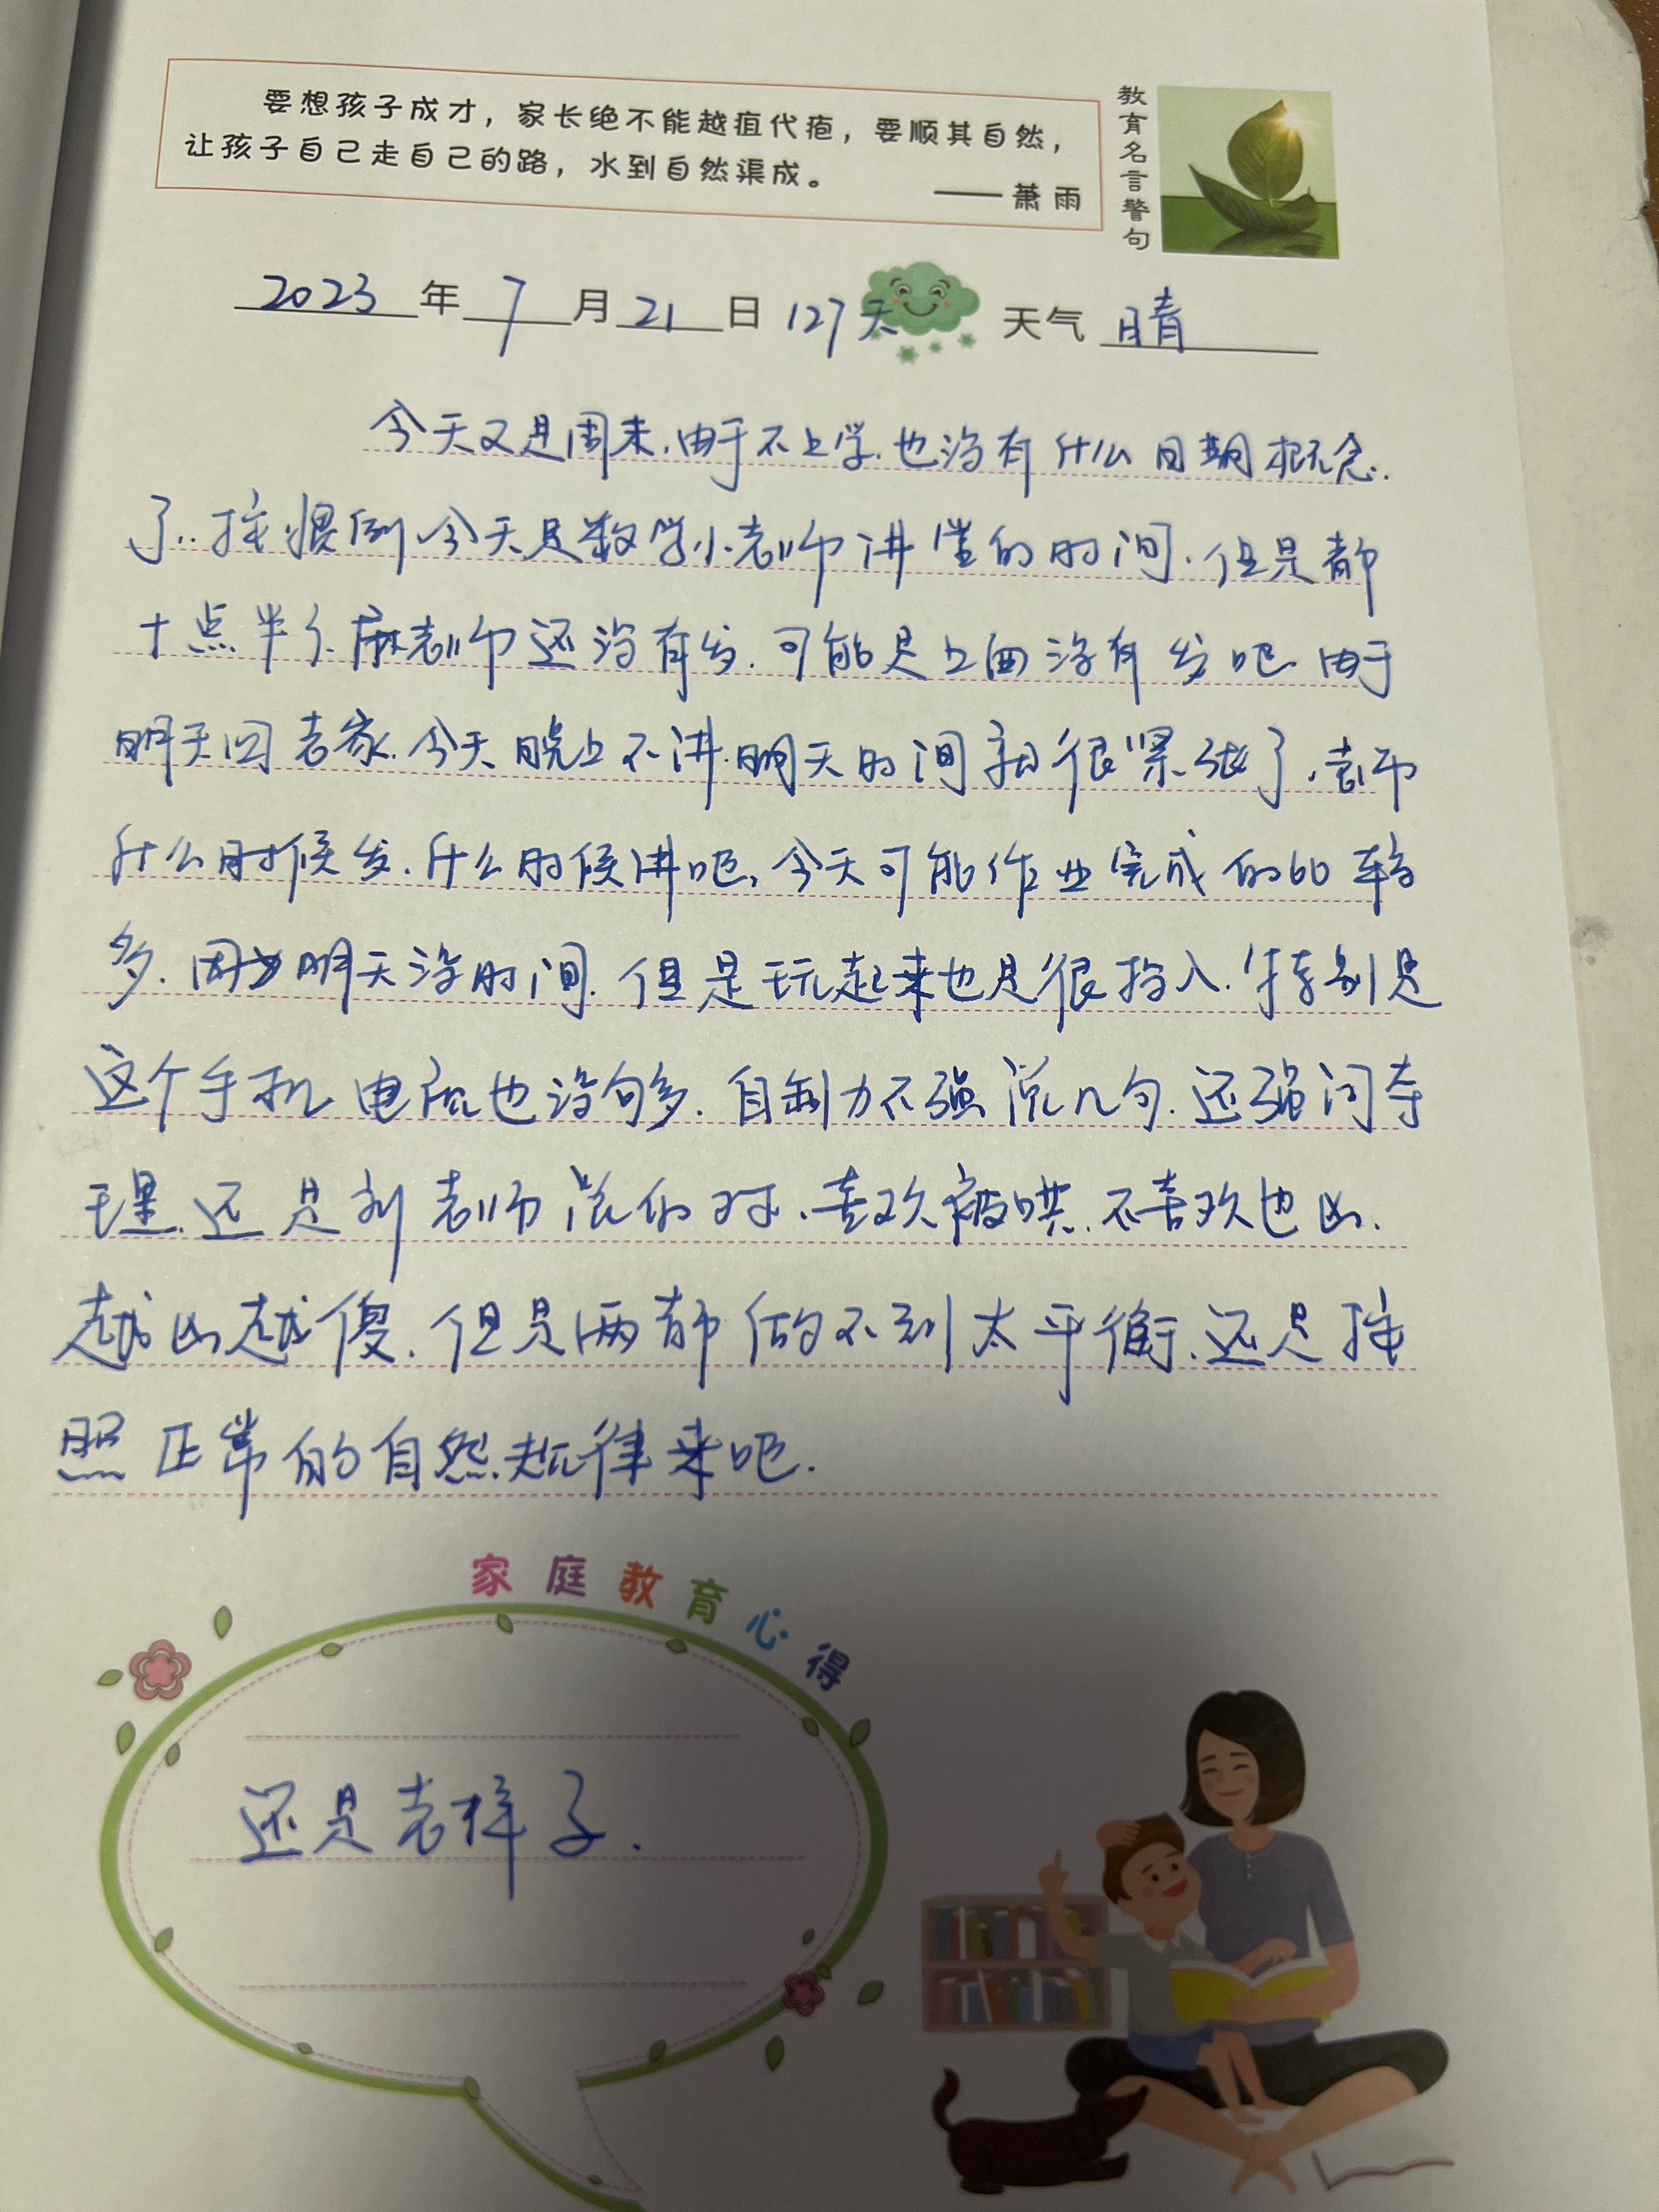 要想孩子成才，家长绝不能越疽代疱，要顺其自然，
让孩子自己走自己的路，水到自然渠成。
——萧雨
教育名言警句
2023年7月21日 127天 天气 晴
今天又是周末.由于不上学.也没有什么日期概念.
了..按惯例今天是数学小老师讲堂的时间.但是都
十点半了.麻老师还没有发.可能是上面没有发吧.由于
明天回老家.今天晚上不讲.明天时间就很紧张了.老师
什么时候发.什么时候讲吧,今天可能作业完成的比较
多.因为明天没时间.但是玩起来也是很投入.特别是
这个手机 电话也没句多.自制力不强 说几句.还强词夺
理.还是刘老师说的对.喜欢被哄.不喜欢也凶.
越凶越傻.但是两都做不到太平衡.还是按
照正常的自然规律来吧.
家庭教育心得
还是老样子.